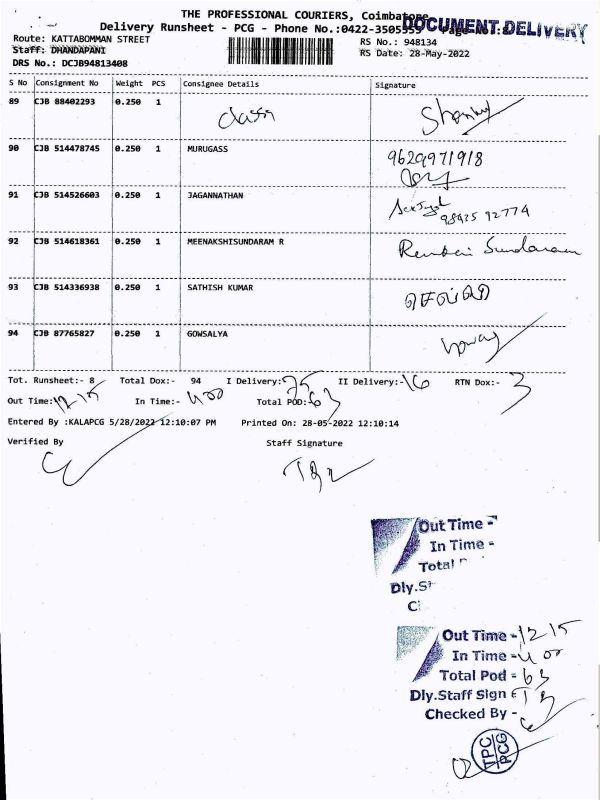 THE PROFESSIONAL COURIERS, Coimbatore
DOCUMENT DELIVERY
Delivery Runsheet - PCG - Phone No.:0422-3505555
Route: KATTABOMMAN STREET
RS No.: 948134
Staff: DHANDAPANI
RS Date: 28-May-2022
DRS No.: DCJB94813408
S No Consignment No Weight PCS Consignee Details Signature
89 CJB 88402293 0.250 1
90 CJB 514478745 0.250 1 MURUGASS 9629971918
91 CJB 514526603 0.250 1 JAGANNATHAN 98425 92774
92 CJB 514618361 0.250 1 MEENAKSHISUNDARAM R Sundaram
93 CJB 514336938 0.250 1 SATHISH KUMAR
94 CJB 87765827 0.250 1 GOWSALYA
Tot. Runsheet:- 8 Total Dox:- 94 I Delivery:- 75 II Delivery:- 16 RTN Dox:- 3
Out Time:- 12 15 In Time:- 4 00 Total POD: 63
Entered By :KALAPCG 5/28/2022 12:10:07 PM Printed On: 28-05-2022 12:10:14
Verified By Staff Signature
Out Time -
In Time -
Total
Dly.St
Out Time - 12 15
In Time - 4 00
Total Pod = 63
Dly.Staff Sign
Checked By -
TPC
PCG